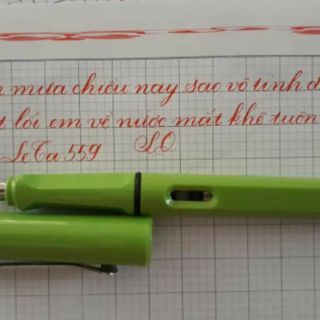 mưa chiều nay sao vô tình
lối em về nước mắt khẽ tuôn
559